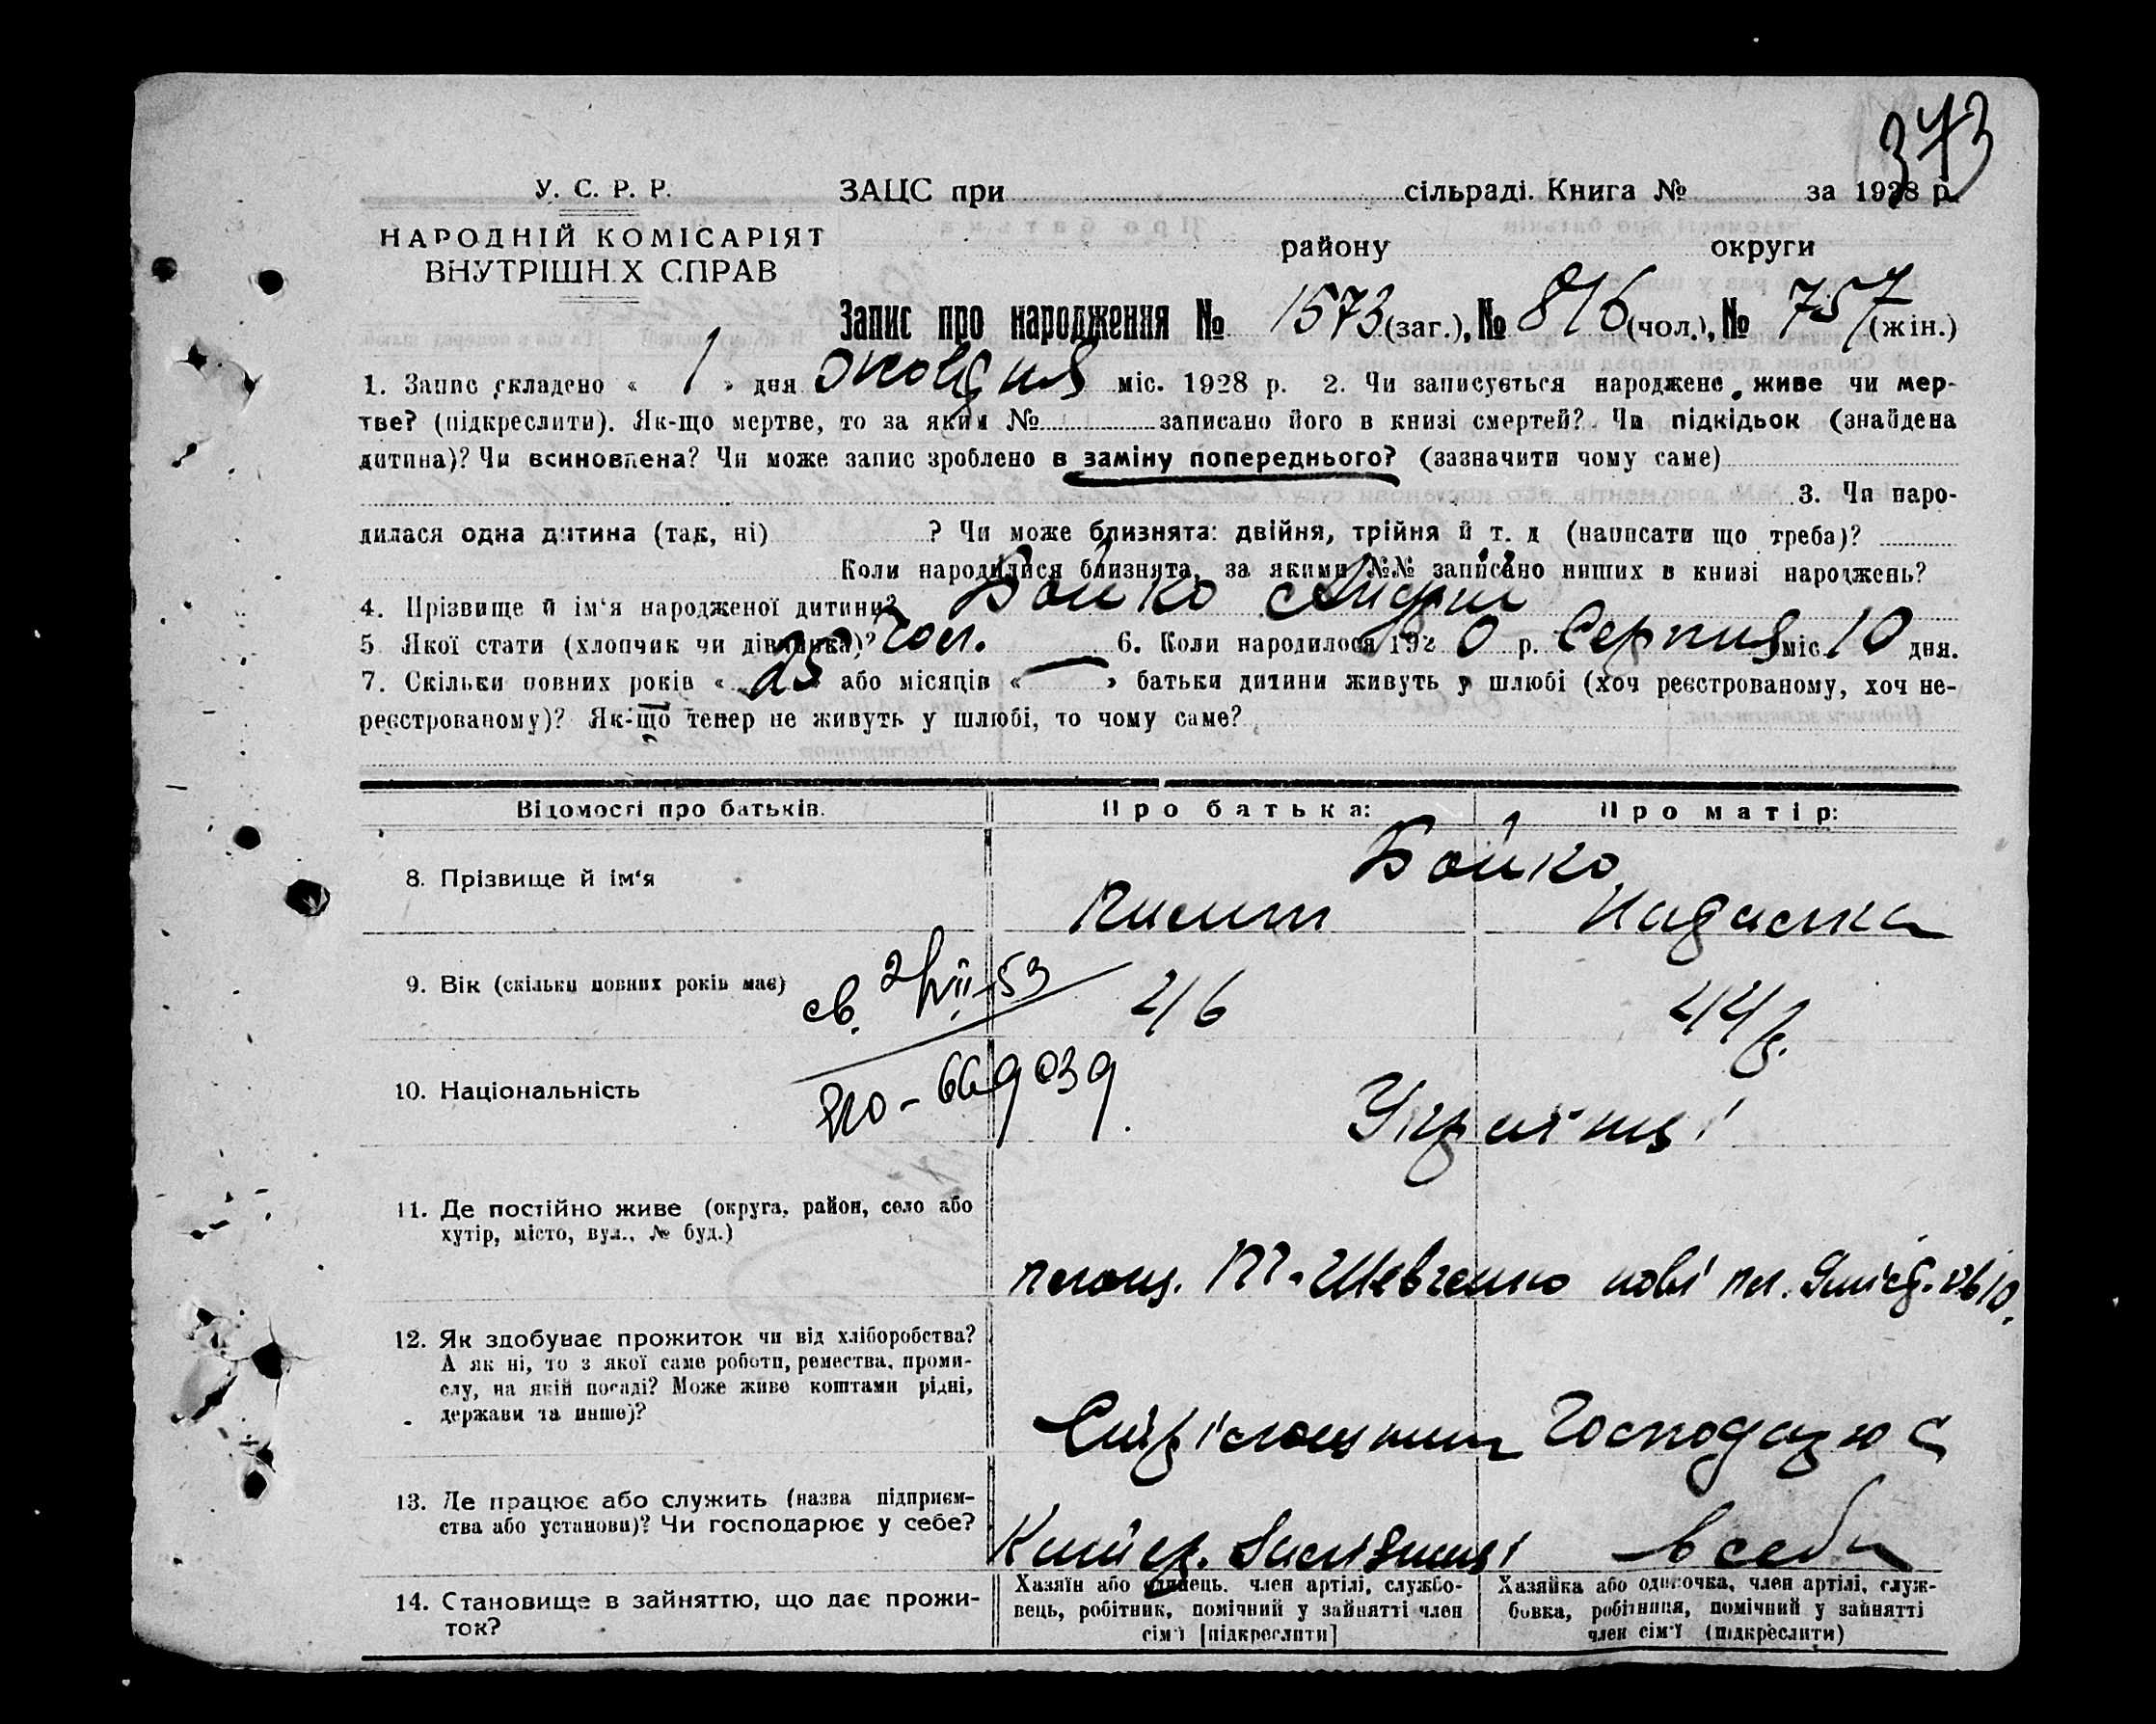 373
У. С. Р. Р.
ЗАЦС при сільраді. Книга № за 1928 р.
НАРОДНІЙ КОМІСАРІЯТ
ВНУТРІШНІХ СПРАВ
району округи
Запис про народження № 1573 (заг.), № 816 (чол.), № 757 (жін.)
1. Запис складено « 1 » дня октября міс. 1928 р. 2. Чи записується народжене, живе чи мер-
тве? (підкреслити). Як-що мертве, то за яким № записано його в книзі смертей? Чи підкідьок (знайдена
дитина)? Чи всиновлена? Чи може запис зроблено в заміну попереднього? (зазначити чому саме)
3. Чи наро-
дилася одна дитина (так, ні) ? Чи може близнята: двійня, трійня й т. д (написати що треба)?
Коли народилися близнята, за якими №№ записано инших в книзі народжень?
4. Прізвище й ім'я народженої дитини? Бойко Андрій
5 Якої стати (хлопчик чи дівчинка)? чол. 6. Коли народилося 1920 р. Серпня міс. 10 дня.
7. Скільки повних років « 25 » або місяців « — » батьки дитини живуть у шлюбі (хоч реєстрованому, хоч не-
реєстрованому)? Як-що тепер не живуть у шлюбі, то чому саме?
Відомості про батьків. Про батька: Про матір:
Бойко
8. Прізвище й ім'я
9. Вік (скільки повних років має) 46 44 р.
св. 2/VII-53
10. Національність Українці
669039
11. Де постійно живе (округа, район, село або
хутір, місто, вул., № буд.)
площ. Т. Шевченко нові пл.
12. Як здобуває прожиток чи від хліборобства?
А як ні, то з якої саме роботи, ремества, проми-
слу, на якій посаді? Може живе коштами рідні,
держави та инше)?
Господарює
13. Де працює або служить (назва підприєм-
ства або установи)? Чи господарює у себе?
в себе
14. Становище в зайняттю, що дає прожи-
ток?
Хазяїн або одинець, член артілі, службо-
вець, робітник, помічний у зайнятті член
сім'ї [підкреслити]
Хазяйка або одиночка, член артілі, служ-
бовка, робітниця, помічний у зайнятті
член сім'ї (підкреслити)